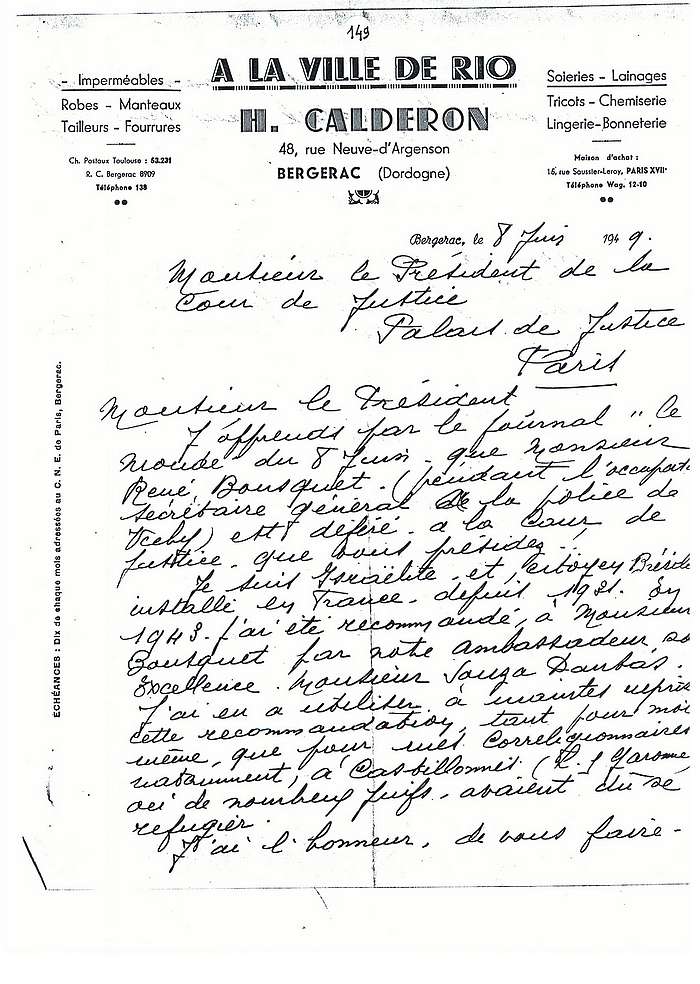 149
- Imperméables -
Robes - Manteaux
Tailleurs - Fourrures
Ch. Postaux Toulouse : 53.231
R. C. Bergerac 8909
Téléphone 138
A LA VILLE DE RIO
H. CALDERON
48, rue Neuve-d'Argenson
BERGERAC (Dordogne)
Soieries - Lainages
Tricots - Chemiserie
Lingerie-Bonneterie
Maison d'achat :
16, rue Saussier-Leroy, PARIS XVIIe
Téléphone Wag. 12-10
Bergerac, le 8 Juin 1949.
Monsieur le Président de la
Cour de Justice
Palais de Justice
Paris
Monsieur le Président
J'apprends par le journal "le
monde du 8 Juin - que Monsieur
René Bousquet - (pendant l'occupat
secrétaire général de la police de
Vichy) est déféré a la Cour de
Justice - que vous présidez...
Je suis Israëlite - et, citoyen Brésil
installé en France - depuis 1921. En
1943 - j'ai été recommandé, à Monsieur
Bousquet par notre ambassadeur, so
Excellence - Monsieur Souza Dantas.
J'ai eu a utiliser à maintes repris
cette recommandation, tant pour moi
même, que pour mes Correligionnaires
notamment, à Castillonnès (L. & Garonne
où de nombreux juifs - avaient du se
refugier.
J'ai l'honneur, de vous faire -
ECHÉANCES : Dix de chaque mois adressées au C. N. E. de Paris, Bergerac.